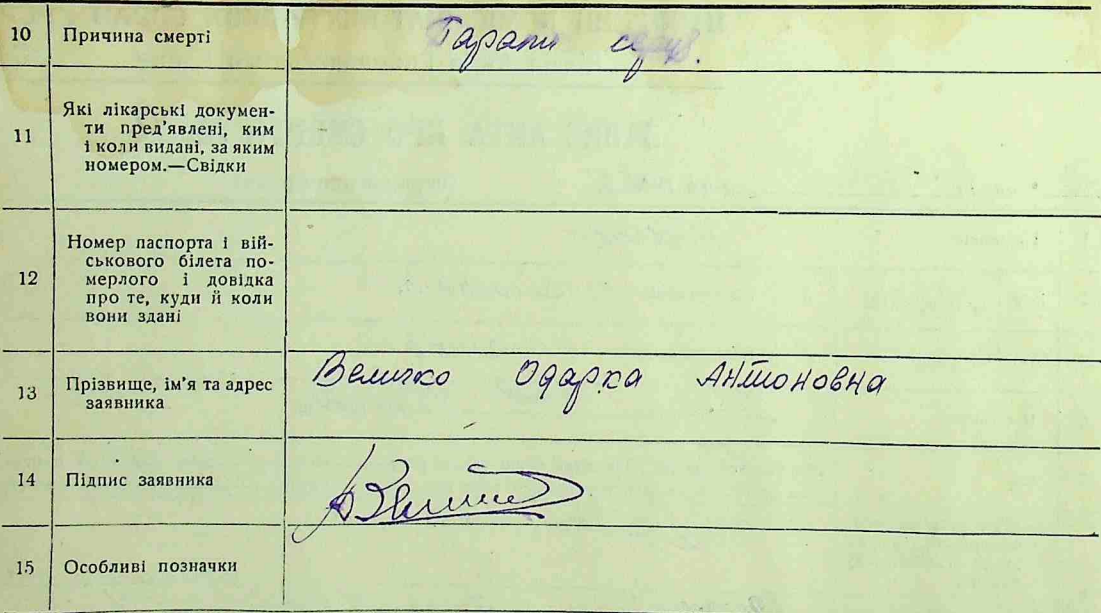 10 Причина смерті
11 Які лікарські докумен-
ти пред'явлені, ким
і коли видані, за яким
номером.—Свідки
12 Номер паспорта і вій-
ськового білета по-
мерлого і довідка
про те, куди й коли
вони здані
13 Прізвище, ім'я та адрес
заявника
Величко Одарка Антоновна
14 Підпис заявника
15 Особливі позначки